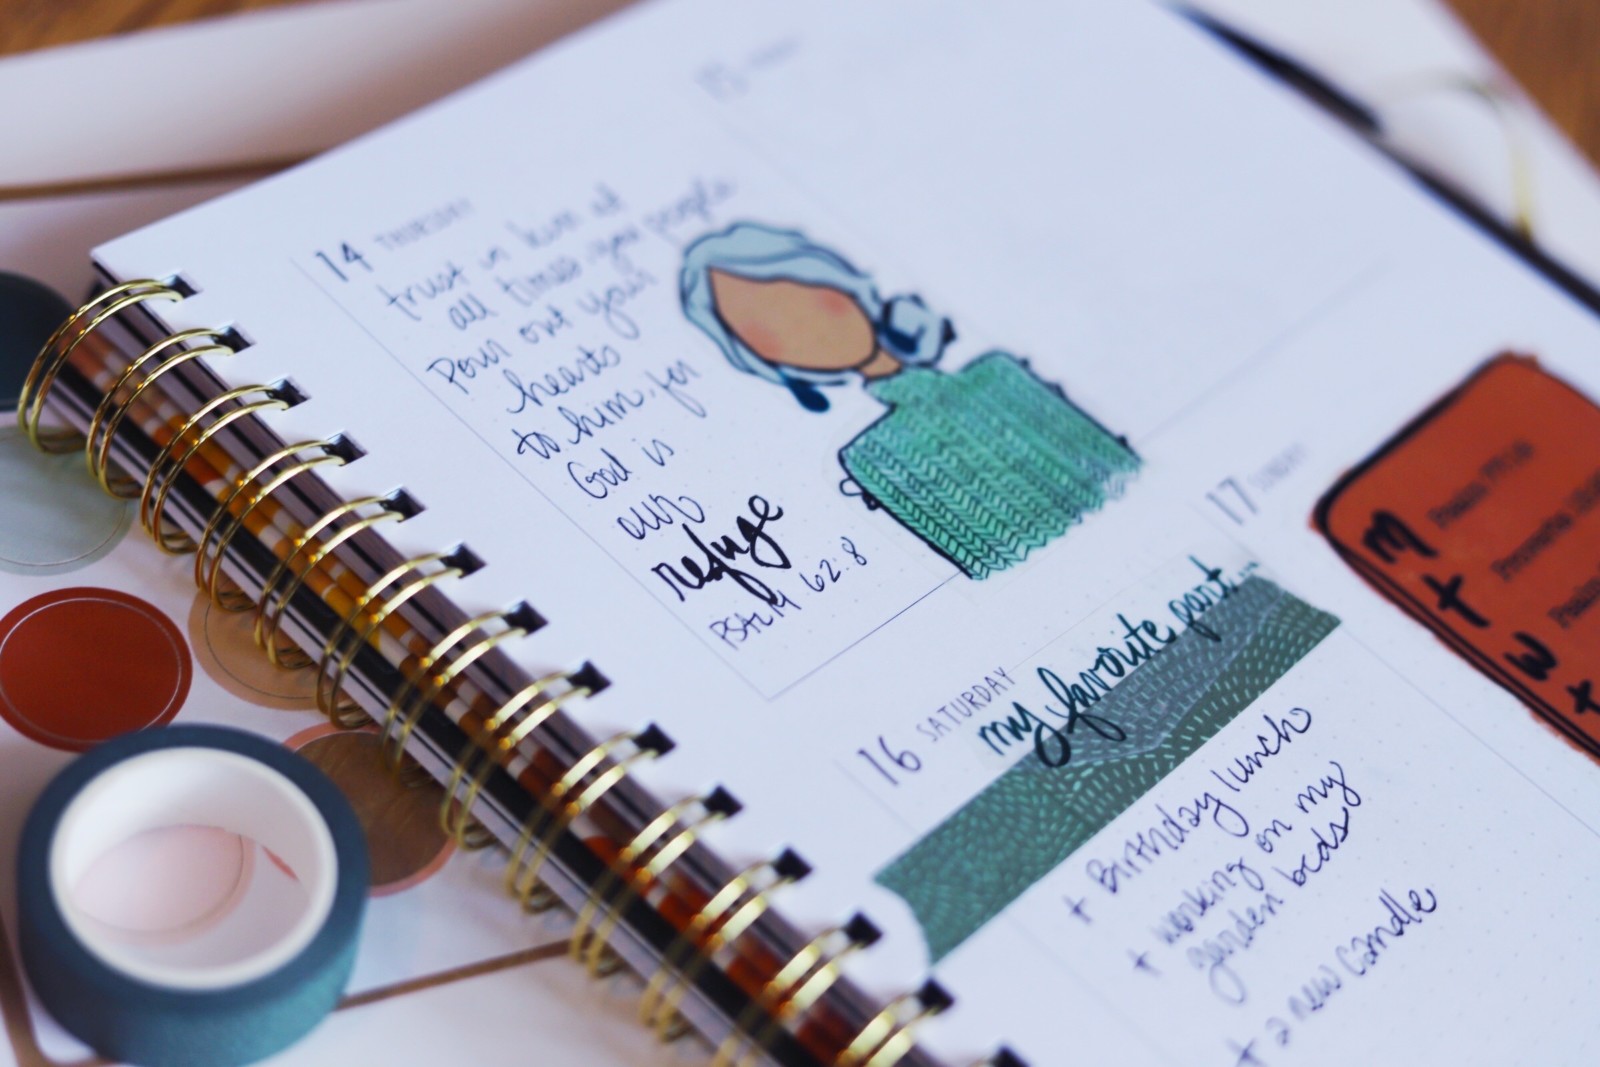 14 THURSDAY
trust in him at
all times you people
Pour out your
hearts
to him, for
God is
our
refuge
PSALM 62:8
15
17 SUNDAY
16 SATURDAY
my favorite part...
+ Birthday lunch
+ working on my
garden beds
+ a new candle
M
T
W
T